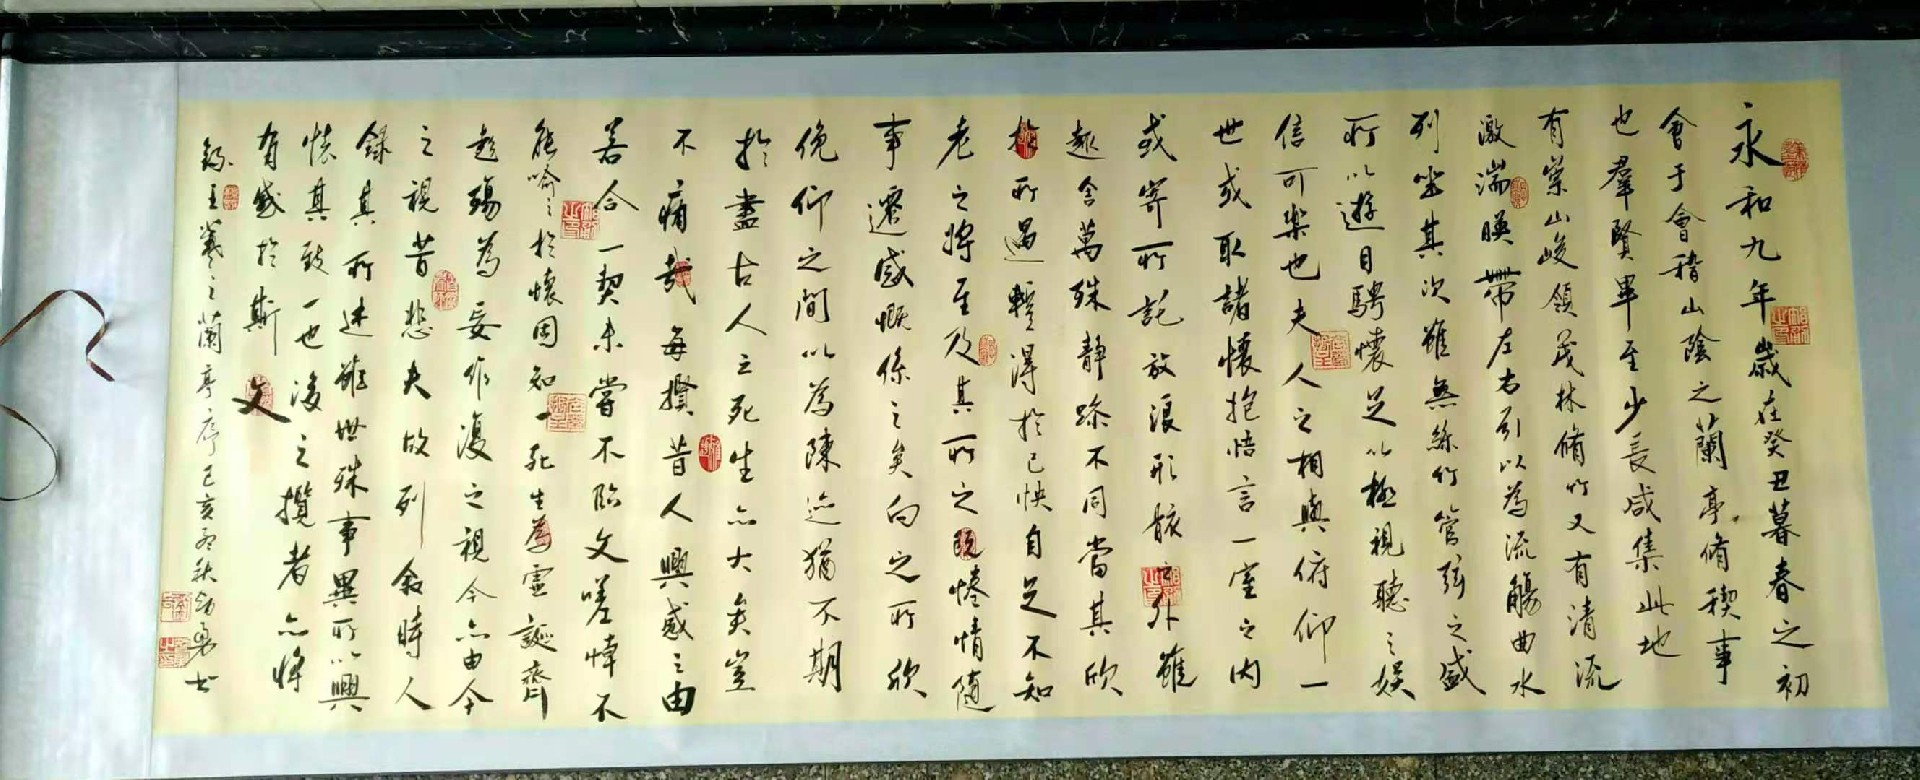 永和九年歲在癸丑暮春之初
會于會稽山陰之蘭亭脩稧事
也羣賢畢至少長咸集此地
有崇山峻領茂林脩竹又有清流
激湍暎帶左右引以為流觴曲水
列坐其次雖無絲竹管弦之盛
所以遊目騁懷足以極視聽之娛
信可樂也夫人之相與俯仰一
世或取諸懷抱悟言一室之內
或寄所託放浪形骸之外雖
趣舍萬殊靜躁不同當其欣
於所遇輕得於己怏自足不知
老之將至及其所之既惓情隨
事遷感慨係之矣向之所欣
俛仰之間以為陳迹猶不期
於盡古人之死生亦大矣豈
不痛哉每攬昔人興感之由
若合一契未嘗不臨文嗟悼不
能喻之於懷固知一死生為虛誕齊
彭殤為妄作後之視今亦由今
之視昔悲夫故列敘時人
錄其所述雖世殊事異所以興
懷其致一也後之攬者亦將
有感於斯文
錄王羲之蘭亭序己亥秋勇書